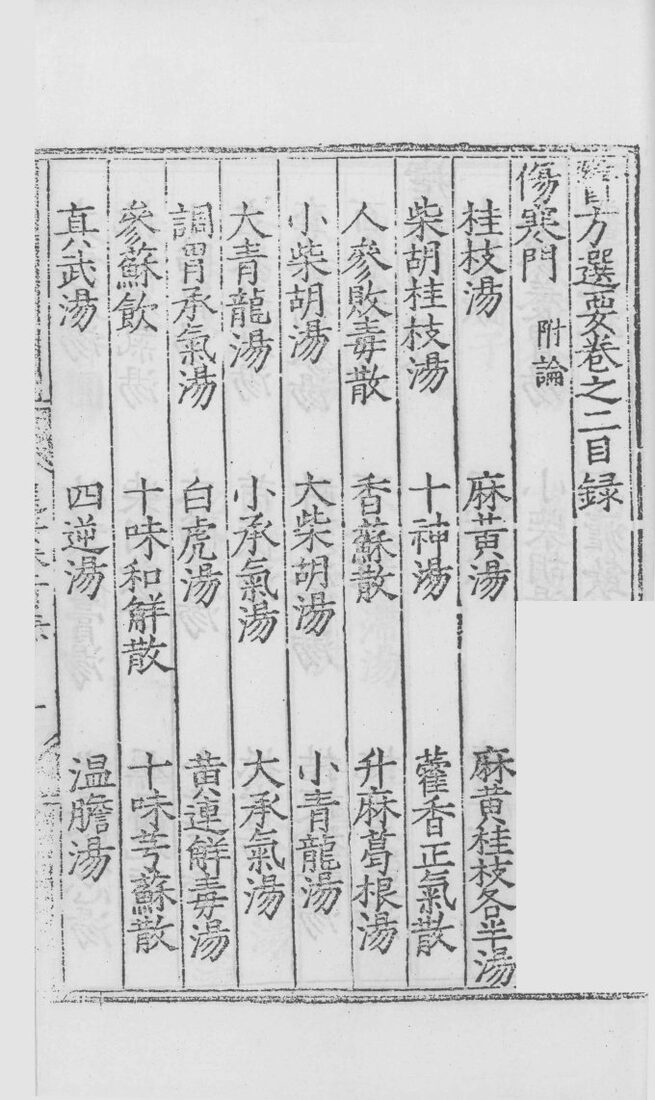 醫方選要卷之二目録
傷寒門 附論
桂枝湯 麻黄湯 麻黄桂枝各半湯
柴胡桂枝湯 十神湯 藿香正氣散
人參敗毒散 香蘇散 升麻葛根湯
小柴胡湯 大柴胡湯 小青龍湯
大青龍湯 小承氣湯 大承氣湯
調胃承氣湯 白虎湯 黄連解毒湯
參蘇飲 十味和解散 十味芎蘇散
真武湯 四逆湯 温膽湯